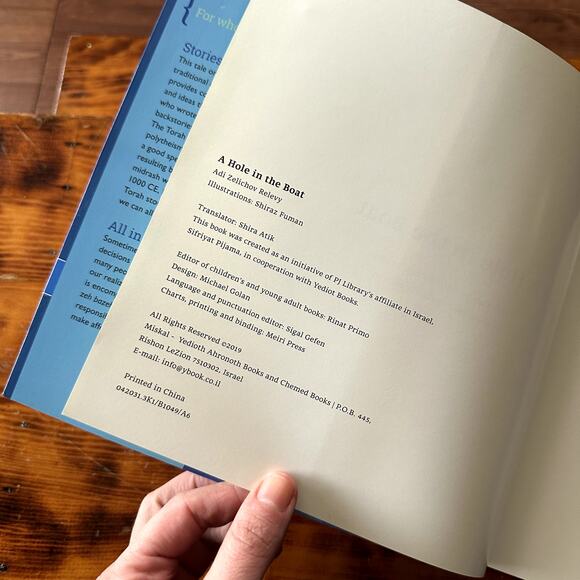 { For
Stories
This tale
traditional
provides
and ideas
who wrote
backstories
The Torah
polytheism
a good
resulting
midrash
1000 CE,
Torah
we can all
All in
Sometime
decisions
many
our
is
zeh
make
A Hole in the Boat
Adi Zelichov Relevy
Illustrations: Shiraz Fuman
Translator: Shira Atik
This book was created as an initiative of PJ Library's affiliate in Israel,
Sifriyat Pijama, in cooperation with Yediot Books.
Editor of children's and young adult books: Rinat Primo
Design: Michael Golan
Language and punctuation editor: Sigal Gefen
Charts, printing and binding: Meiri Press
All Rights Reserved ©2019
Miskal - Yedioth Ahronoth Books and Chemed Books | P.O.B. 445,
Rishon LeZion 7510302, Israel
E-mail: info@ybook.co.il
Printed in China
042031.3K1/B1049/A6